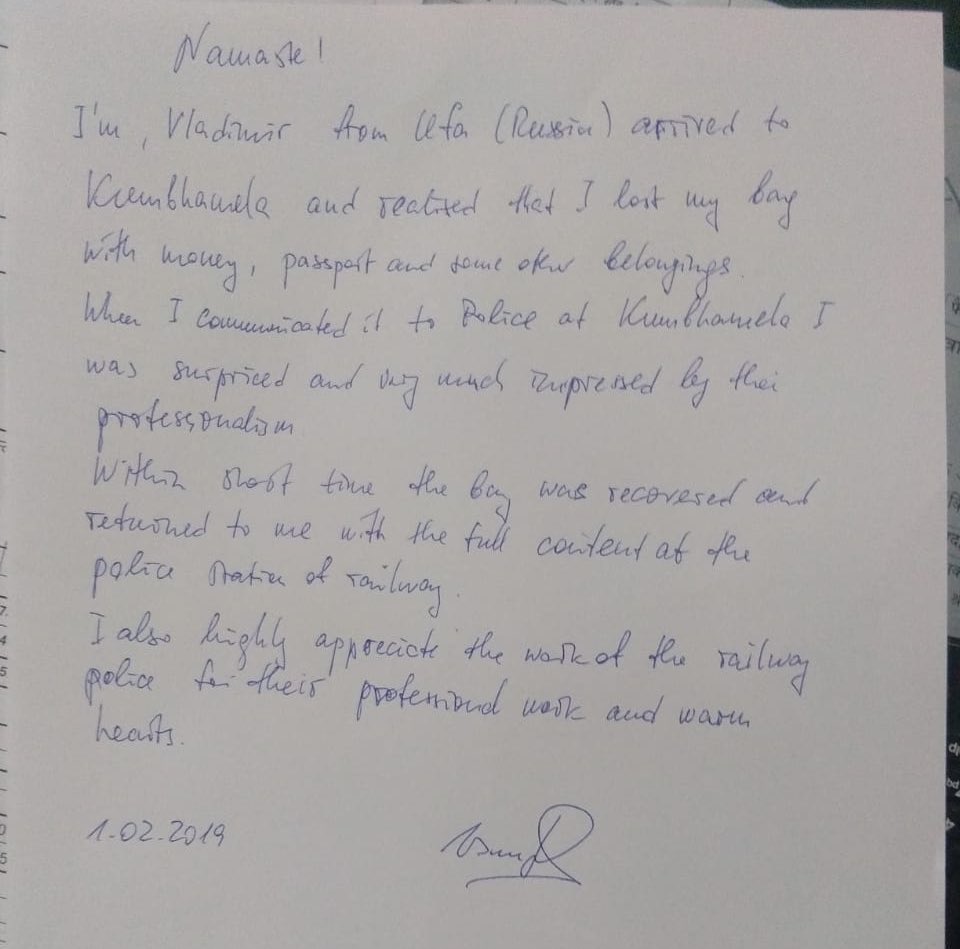 Namaste!
I'm, Vladimir from Ufa (Russia) arrived to
Kumbhamela and realized that I lost my bag
with money, passport and some other belongings.
When I communicated it to Police at Kumbhamela I
was surpriced and very much impressed by their
professionalism
Within short time the bag was recovered and
returned to me with the full content at the
police station of railway.
I also highly appreciate the work of the railway
police for their professional work and warm
hearts.
1.02.2019